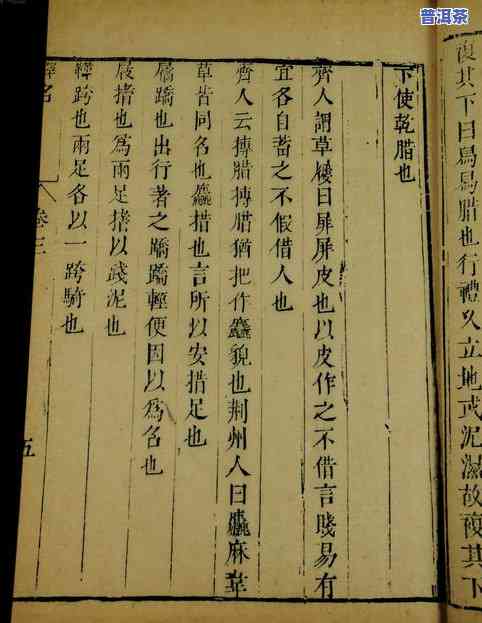 普洱茶
複其下曰舄舄腊也行禮久立地或泥濕故複其下
下使乾腊也
齊人謂草屨曰屝屝皮也以皮作之不借言賤易有
宜各自蓄之不假借人也
齊人云搏腊搏腊猶把作麤貌也荆州人曰麤麻韋
草皆同名也麤措也言所以安措足也
屩蹻也出行著之蹻蹻輕便因以爲名也
屐搘也爲兩足搘以踐泥也
鞾跨也兩足各以一跨騎也
釋名 卷三 五